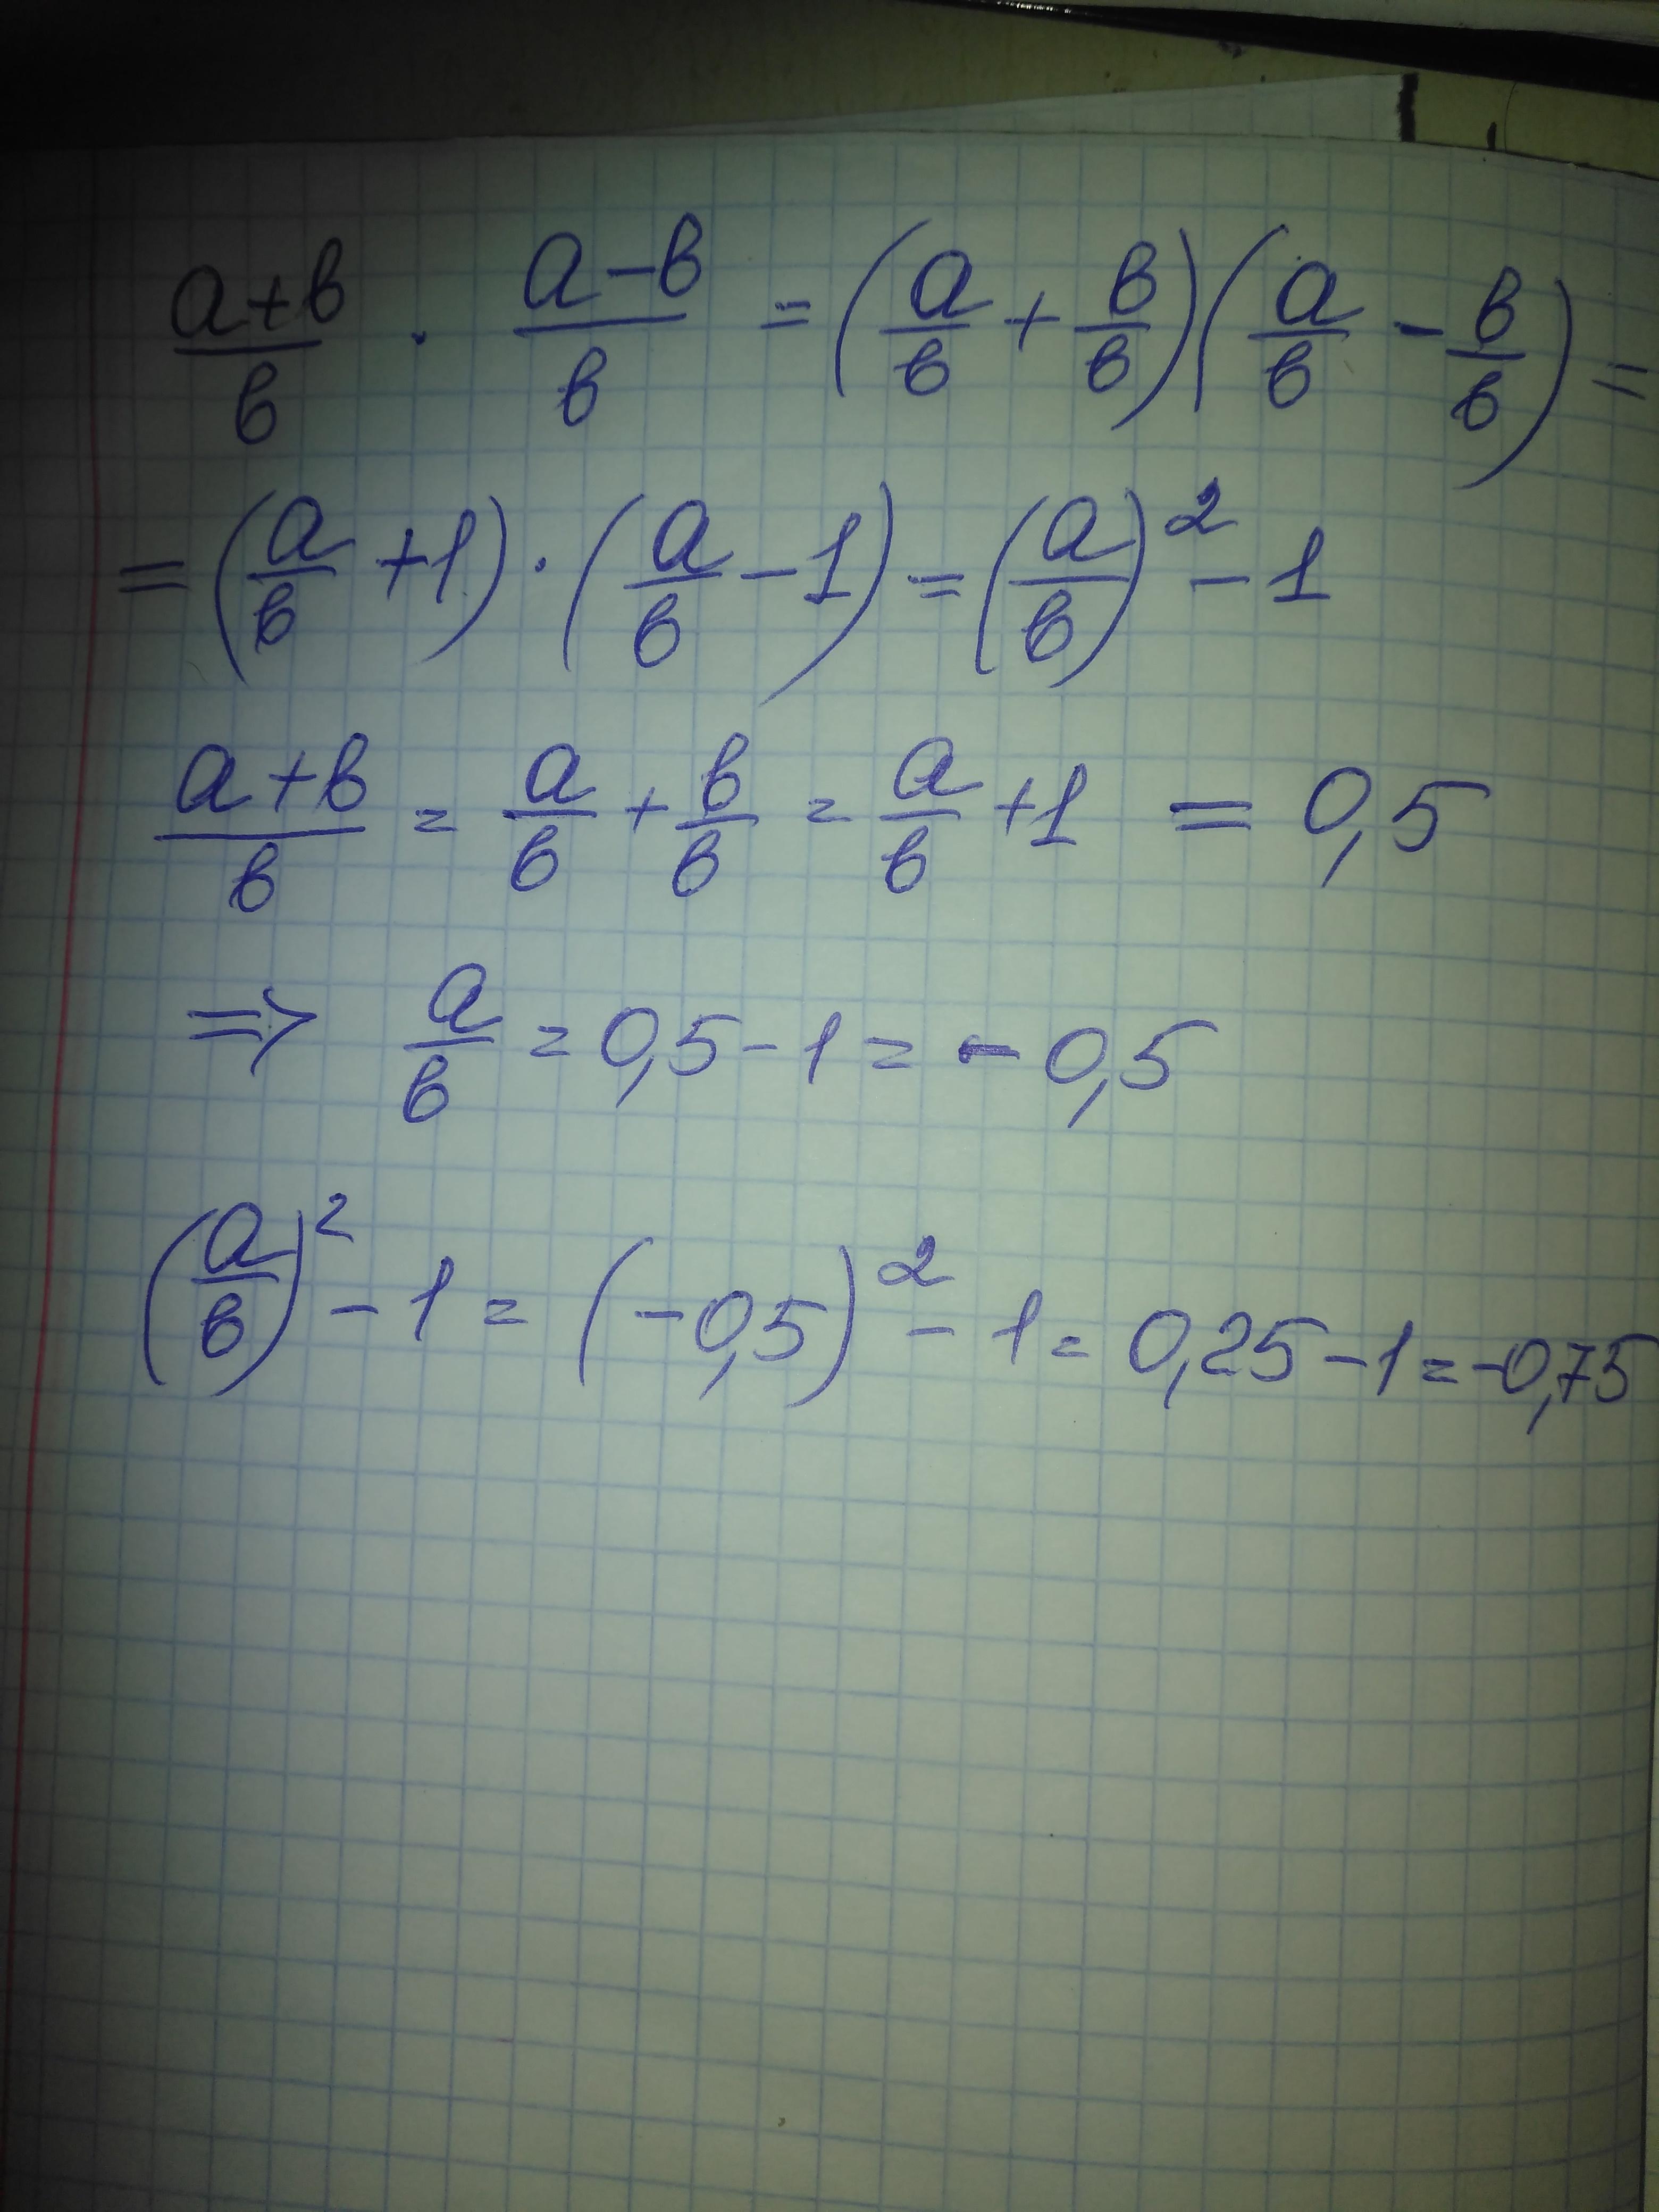 (a+b)/b · (a-b)/b = (a/b + b/b)(a/b - b/b) =
= (a/b +1)·(a/b -1) = (a/b)² - 1
(a+b)/b = a/b + b/b = a/b +1 = 0,5
⇒ a/b = 0,5 - 1 = - 0,5
(a/b)² - 1 = (-0,5)² - 1 = 0,25 - 1 = -0,75